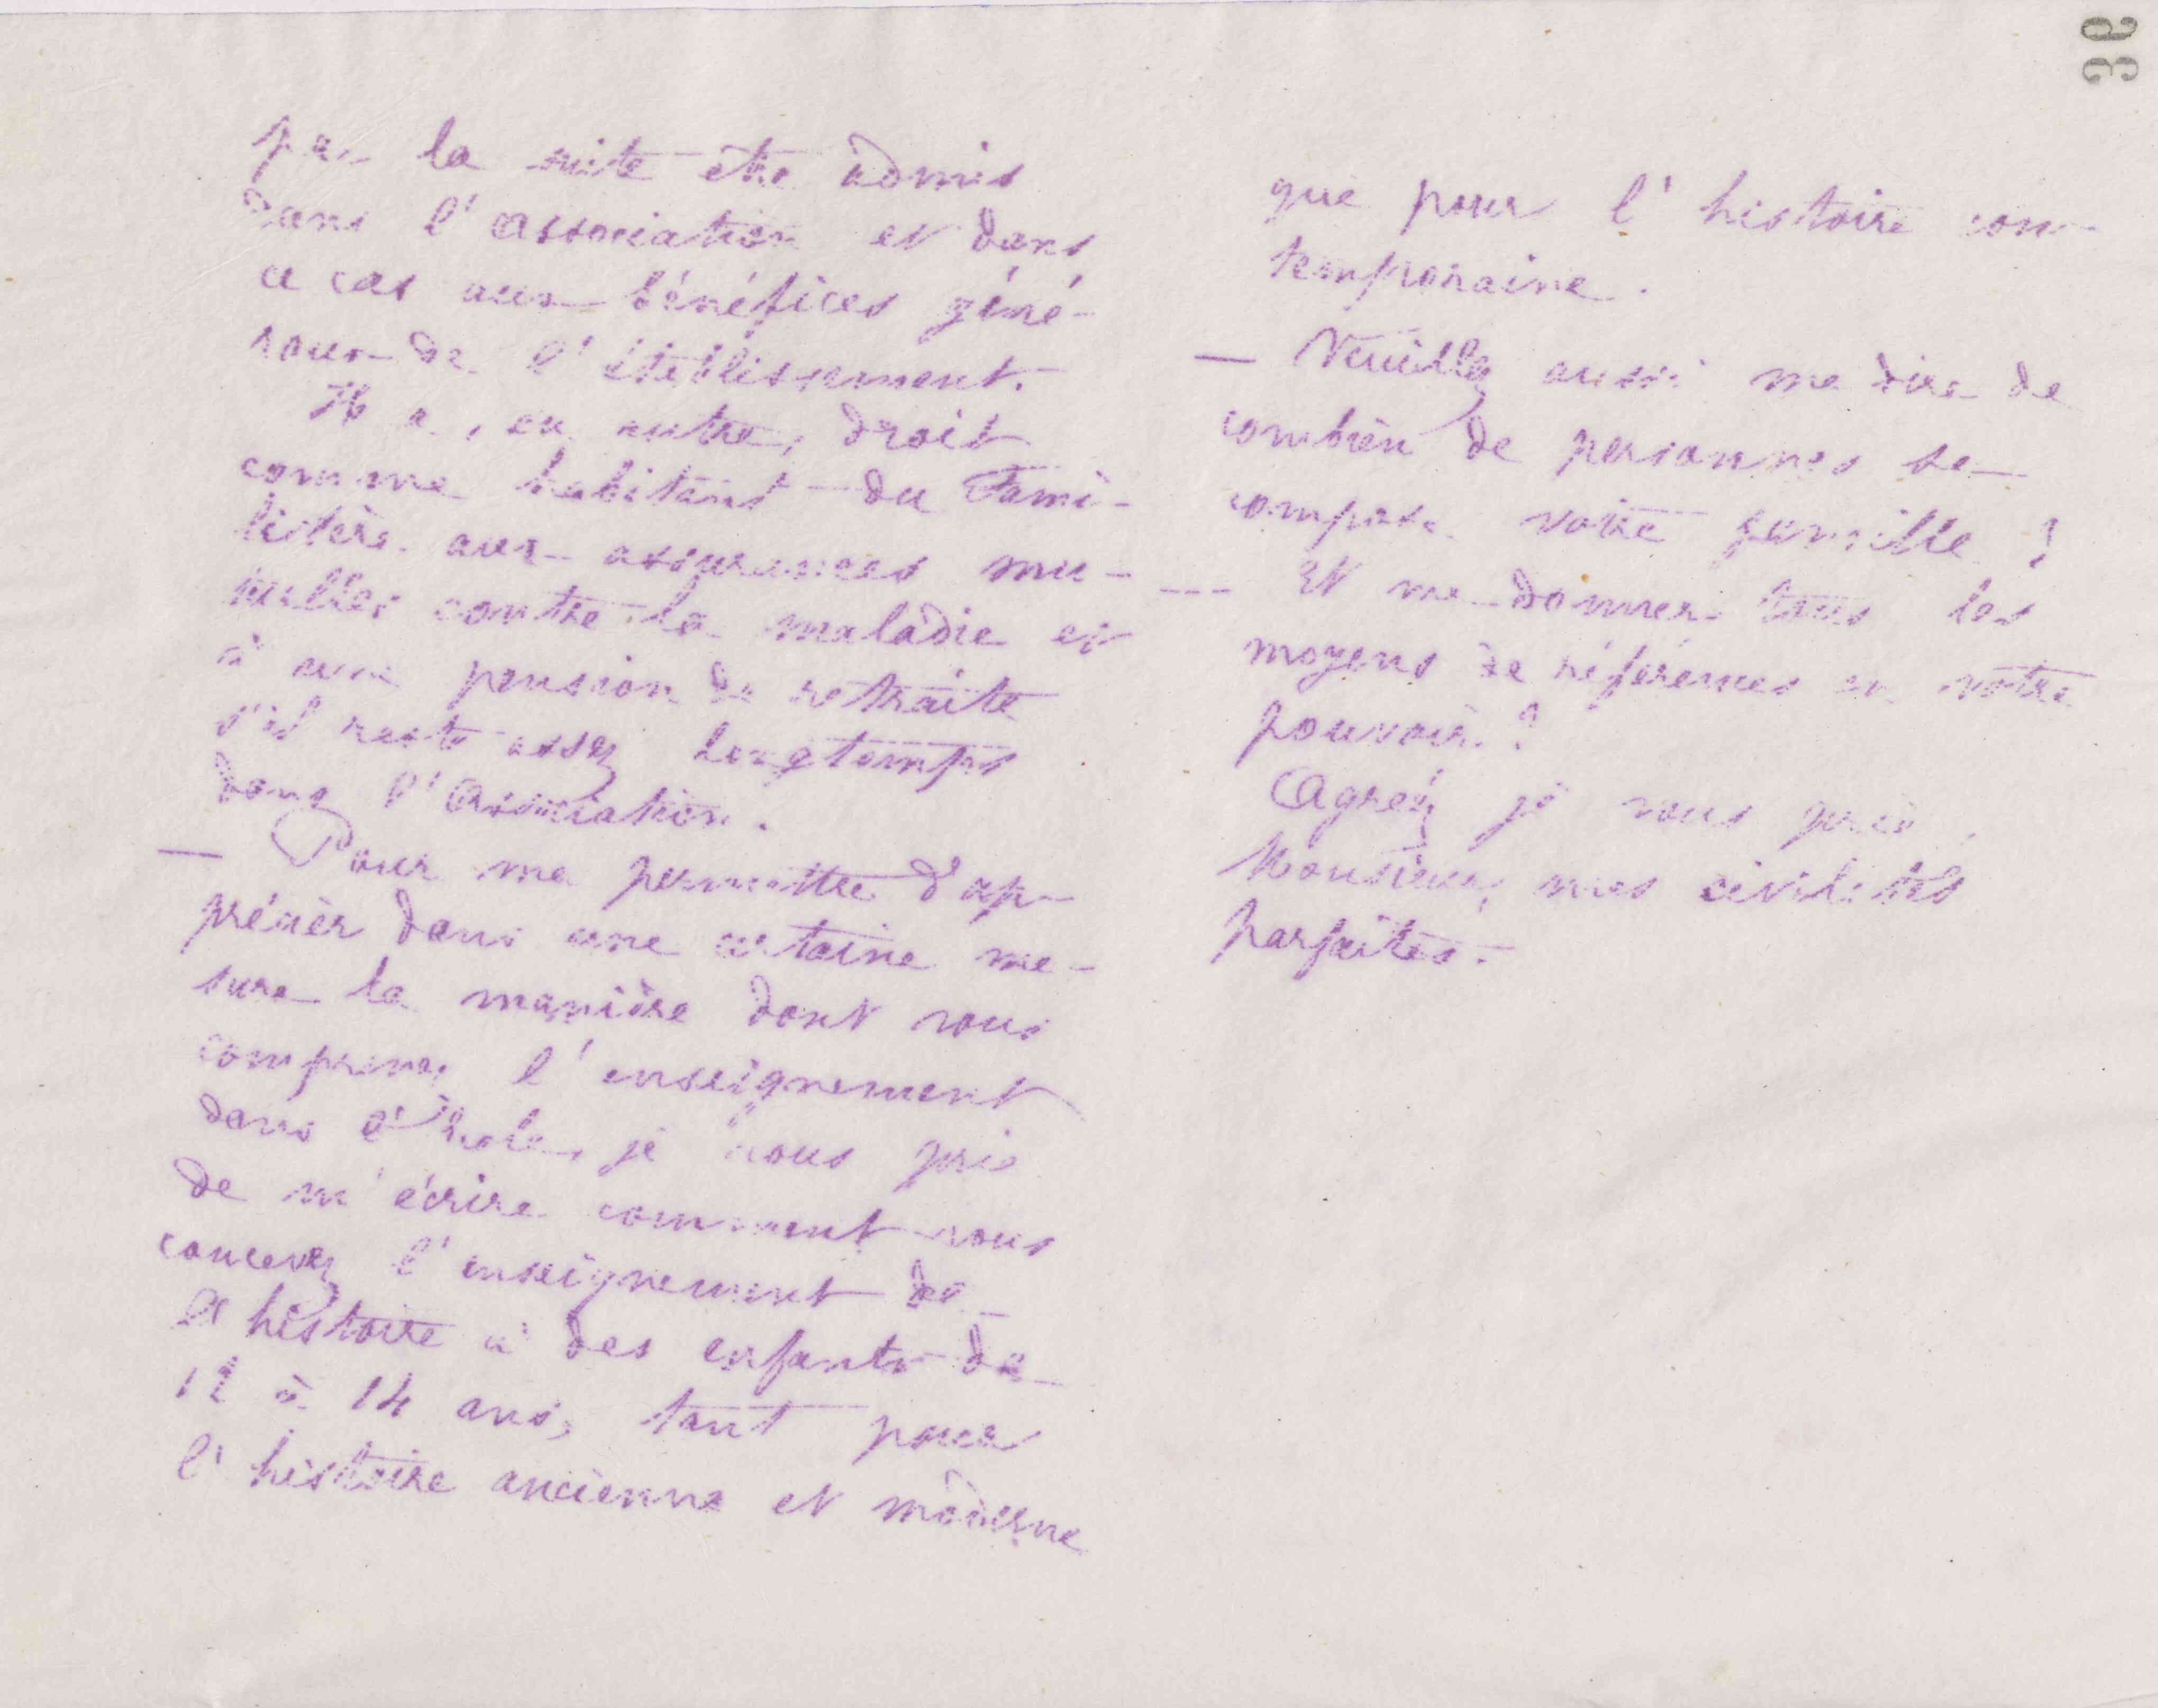 36
par la suite être admis
dans l'Association et dans
ce cas aux bénéfices géné-
raux de l'établissement.
Il a, en outre, droit
comme habitant du Fami-
listère aux assurances mu-
tuelles contre la maladie et
à une pension de retraite
s'il reste assez longtemps
dans l'Association.
— Pour me permettre d'ap-
précier dans une certaine me-
sure la manière dont vous
comprenez l'enseignement
dans l'école, je vous prie
de m'écrire comment vous
concevez l'enseignement de
l'histoire à des enfants de
12 à 14 ans, tant pour
l'histoire ancienne et moderne
que pour l'histoire con-
temporaine.
— Veuillez aussi me dire de
combien de personnes se
compose votre famille ?
--- Et me donner tous les
moyens de références en votre
pouvoir ?
Agréez je vous prie,
Monsieur, mes civilités
parfaites.